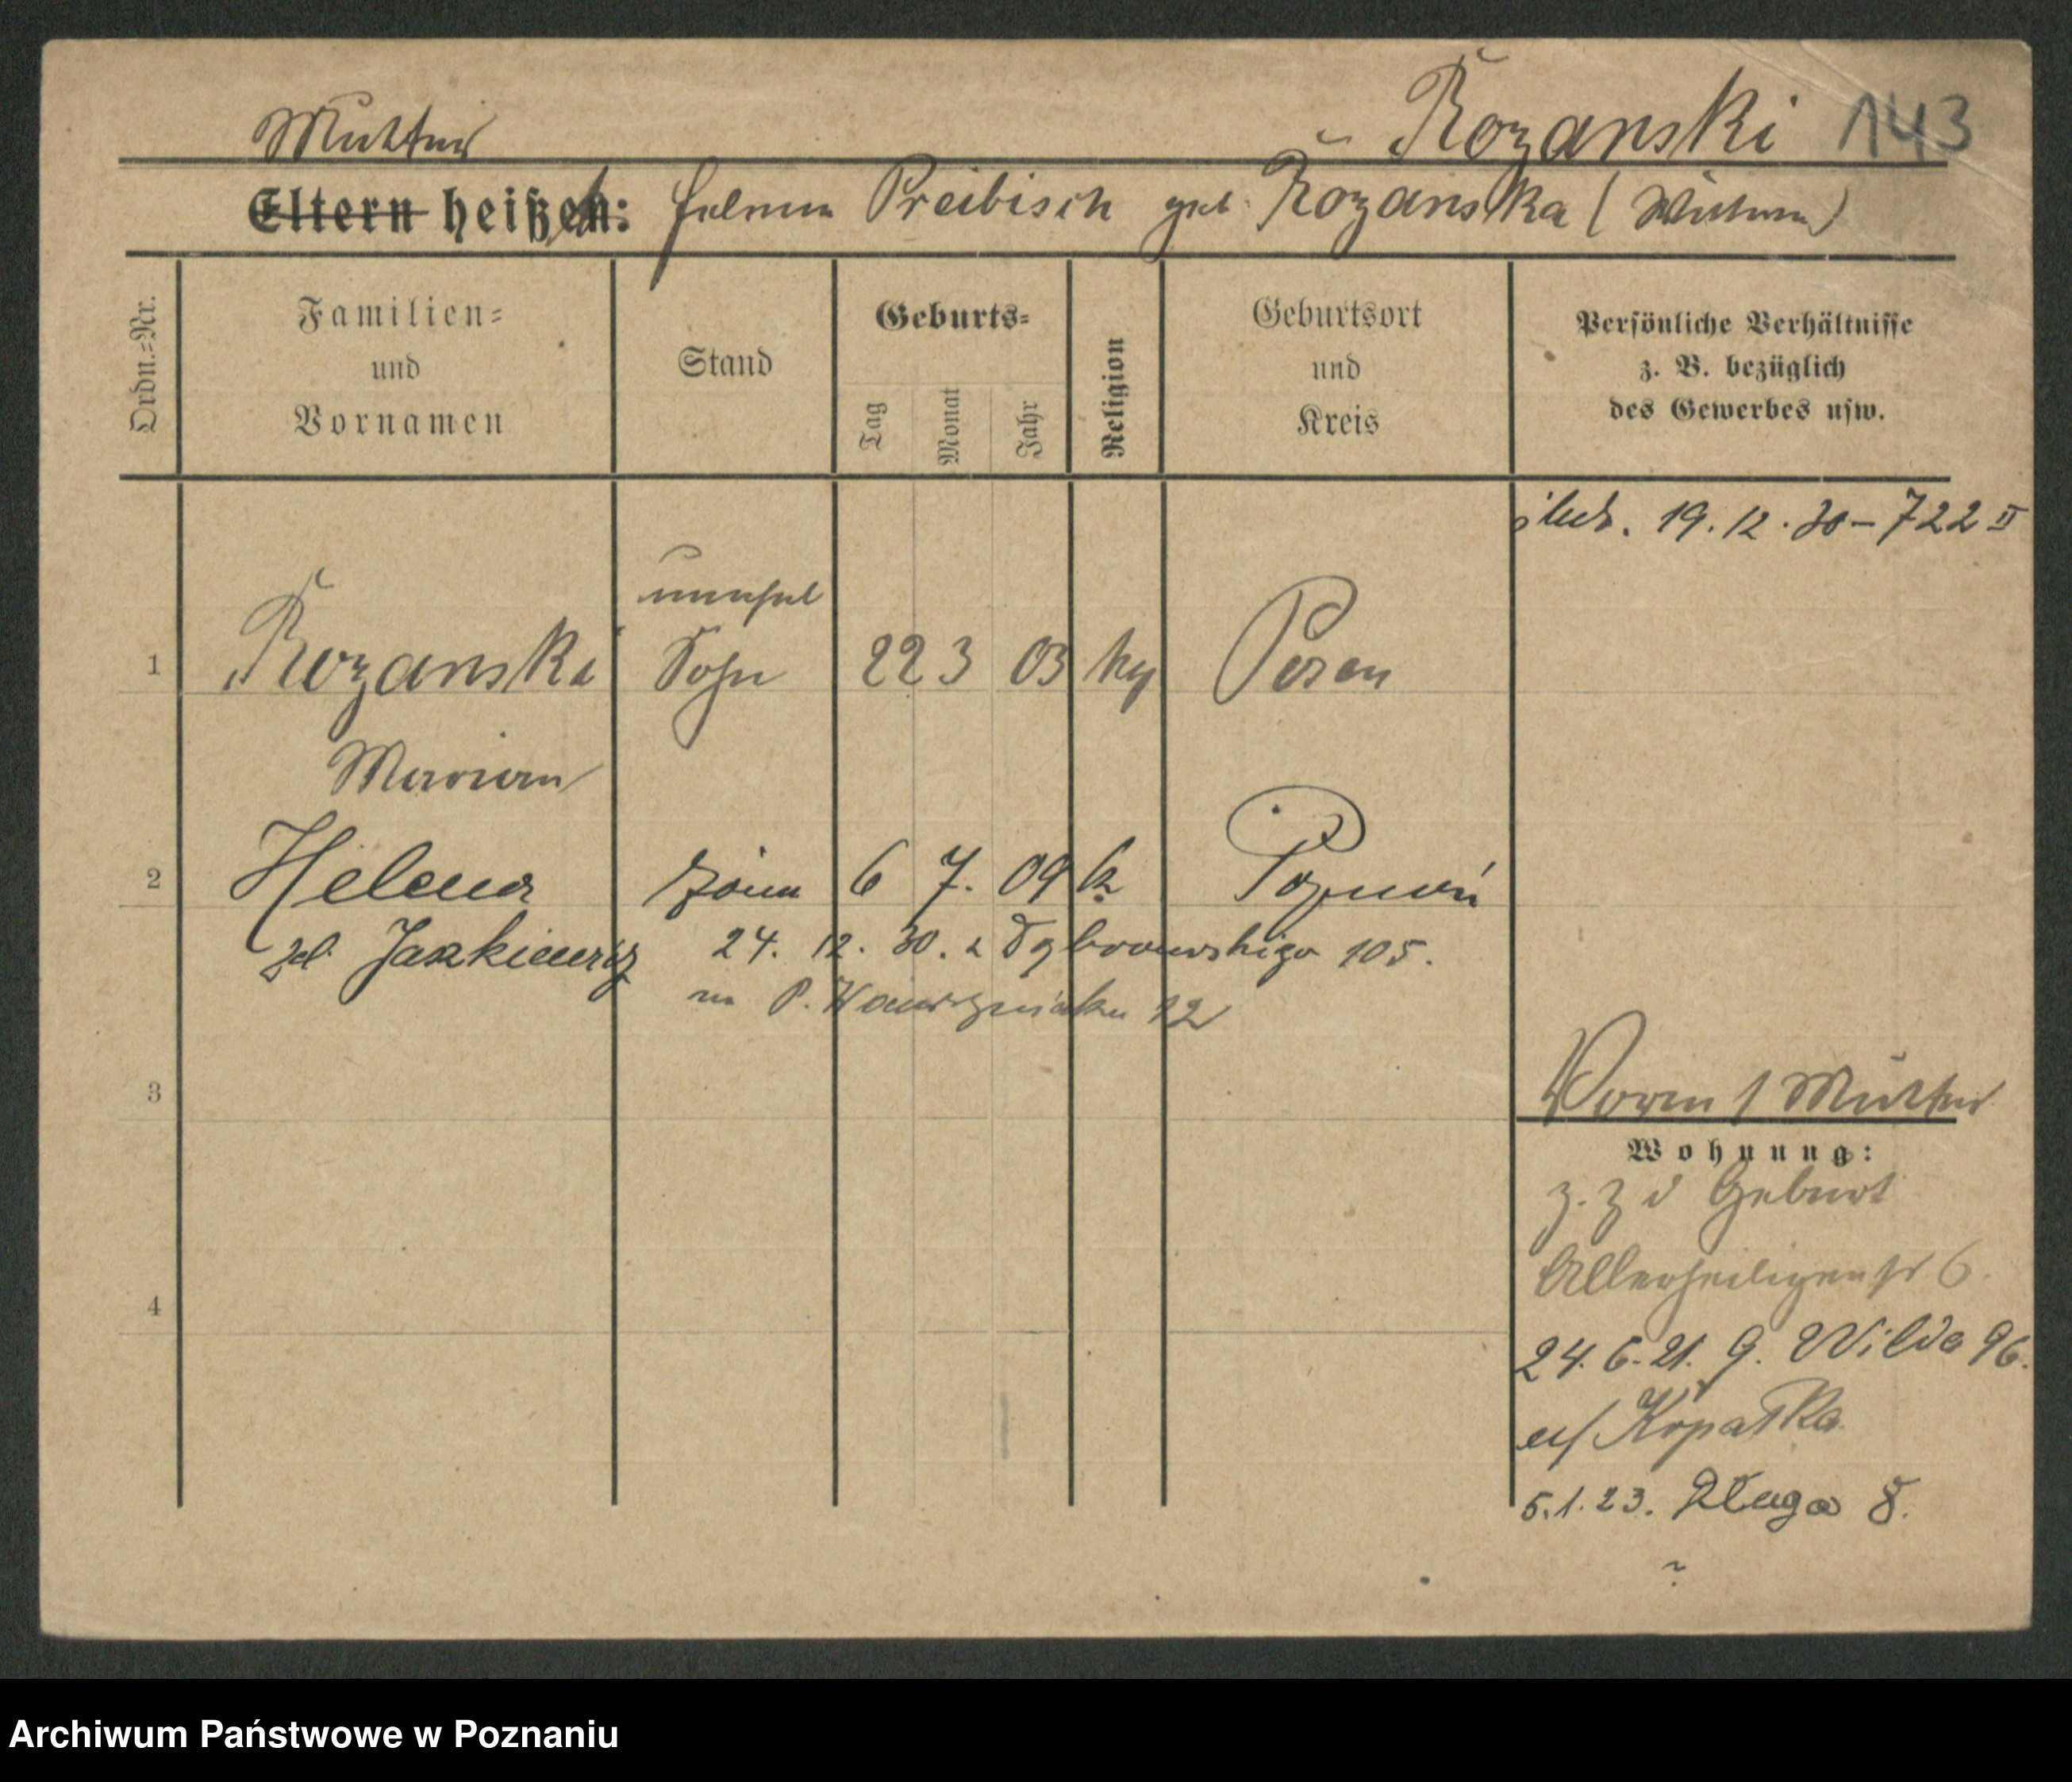 Mutter Rozanski 143
Eltern heißen: Helene Preibisch geb. Rozanska (Witwe)
Ordn.=Nr.
Familien=
und
Vornamen
Stand
Geburts=
Tag
Monat
Jahr
Religion
Geburtsort
und
Kreis
Persönliche Verhältnisse
z. B. bezüglich
des Gewerbes usw.
19.12.30 – 722 II
unehel
1 Rozanski Sohn 22 3 03 kg Posen
Marian
2 Helena żona 6 7. 09 k Poznań
Jaskiewicz 24. 12. 30. z Dąbrowskiego 105.
na P. Wawrzyniaka 12
3
Vorm / Mutter
Wohnung:
z. Z d Geburt
4
Allerheiligenstr 6.
24.6.21. G. Wilda 96.
u/ Kopatka
5.1.23. Długa 8.